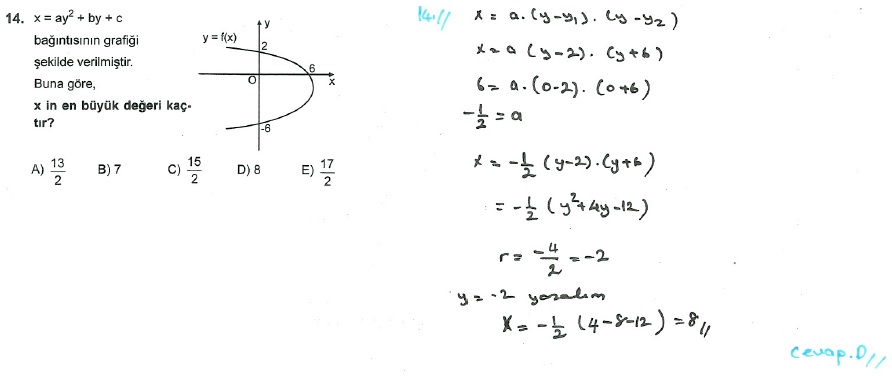 14. x = ay² + by + c
bağıntısının grafiği
şekilde verilmiştir.
Buna göre,
x in en büyük değeri kaç-
tır?
y = f(x)
y
2
6
O
x
-6
A) 13/2 B) 7 C) 15/2 D) 8 E) 17/2
14.//
x = a.(y-y₁).(y-y₂)
x = a(y-2).(y+6)
6 = a.(0-2).(0+6)
-1/2 = a
x = -1/2 (y-2).(y+6)
= -1/2 (y²+4y-12)
r = -4/2 = -2
y = -2 yazalım
x = -1/2 (4-8-12) = 8//
Cevap.D//